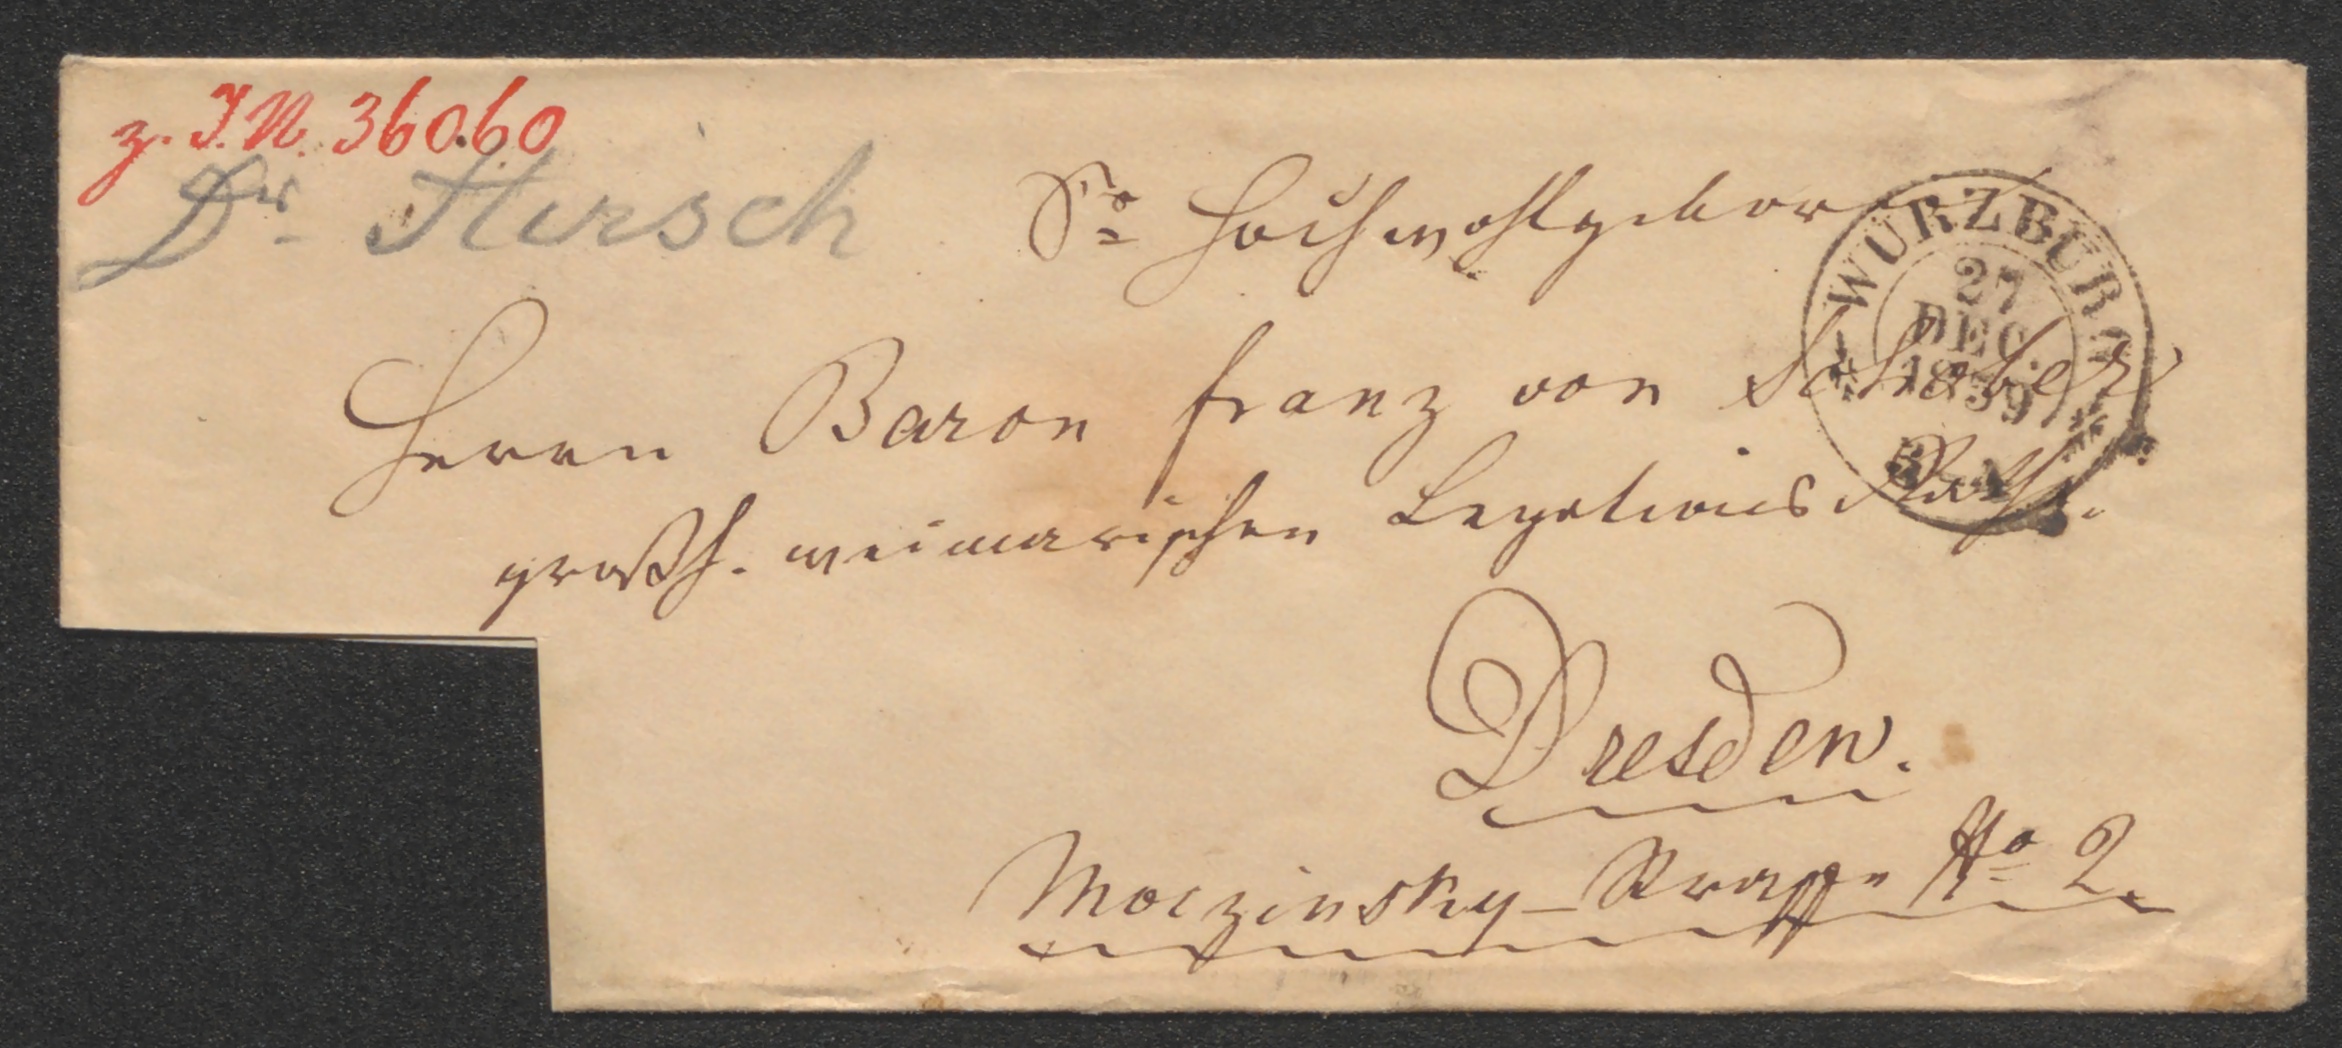 z. I.N. 36060
Dr. Hirsch
Sr Hochwohlgeboren
Herrn Baron Franz von Schober
großh. weimarischen Legations Rath.
Dresden.
Moczinsky-Strasse No 2.
WÜRZBURG
27
DEC.
1859